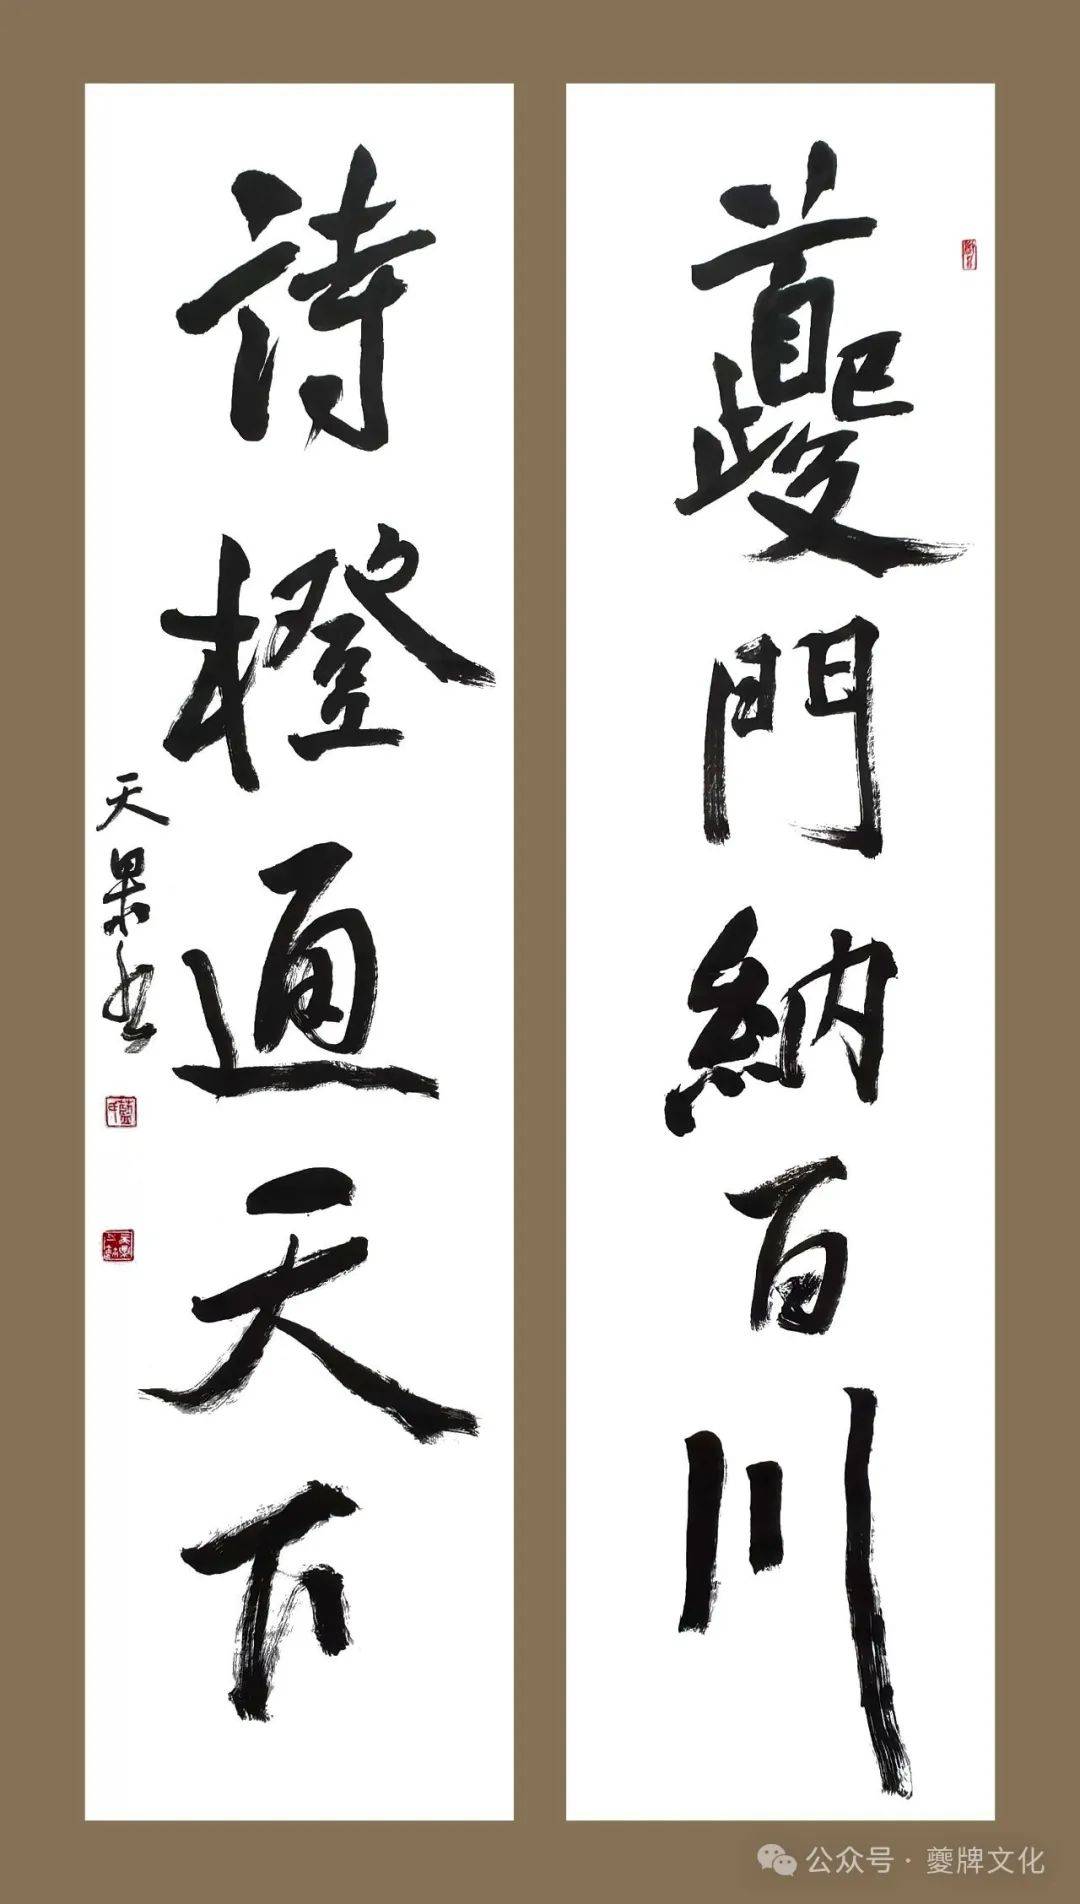 夔門納百川
詩橙通天下
天果書
公众号·夔牌文化